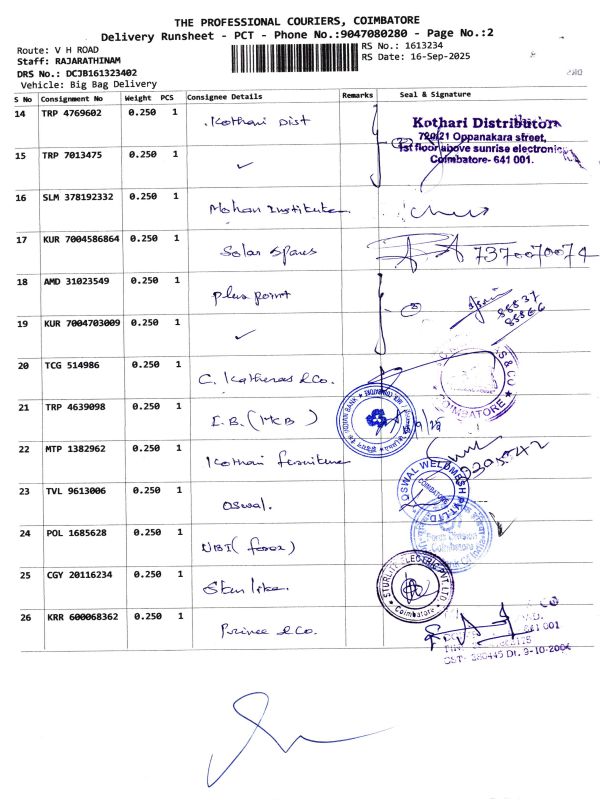 THE PROFESSIONAL COURIERS, COIMBATORE
Delivery Runsheet - PCT - Phone No.:9047080280 - Page No.:2
Route: V H ROAD
RS No.: 1613234
Staff: RAJARATHINAM
RS Date: 16-Sep-2025
DRS No.: DCJB161323402
Vehicle: Big Bag Delivery
S No Consignment No Weight PCS Consignee Details Remarks Seal & Signature
14 TRP 4769602 0.250 1 Kothari Dist
Kothari Distributor
720/21 Oppanakara street,
1st floor above sunrise electronic
Coimbatore- 641 001.
15 TRP 7013475 0.250 1 ✓
16 SLM 378192332 0.250 1 Mohan Institute
17 KUR 7004586864 0.250 1 Solar Spares 7370070074
18 AMD 31023549 0.250 1 plus point
19 KUR 7004703009 0.250 1 ✓
20 TCG 514986 0.250 1 C. Katheras & Co.
& CO
COIMBATORE
21 TRP 4639098 0.250 1 I.B. (MCB)
INDIAN BANK
22 MTP 1382962 0.250 1 Kothari furniture
23 TVL 9613006 0.250 1 Oswal.
OSWAL WELDMESH PVT LTD
COIMBATORE
24 POL 1685628 0.250 1 UBI (forex)
Coimbatore
25 CGY 20116234 0.250 1 Starlike.
STURLITE ELECTRIC PVT LTD
Coimbatore
26 KRR 600068362 0.250 1 Prince & Co.
641 001
CST- 380445 Dt. 9-10-2004